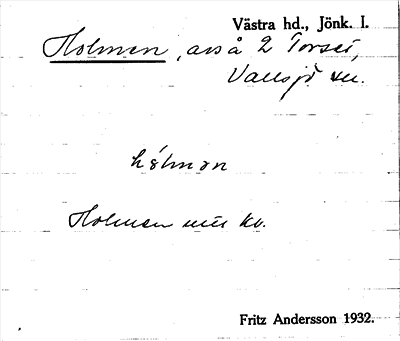 Västra hd., Jönk. l.
Holmen, avs å 2 Torset,
Vallsjö sn.
hólmən
Holmen
Fritz Andersson 1932.